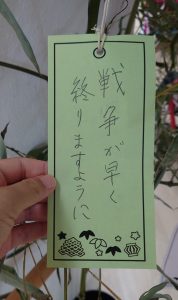 戦争が早く
終りますように